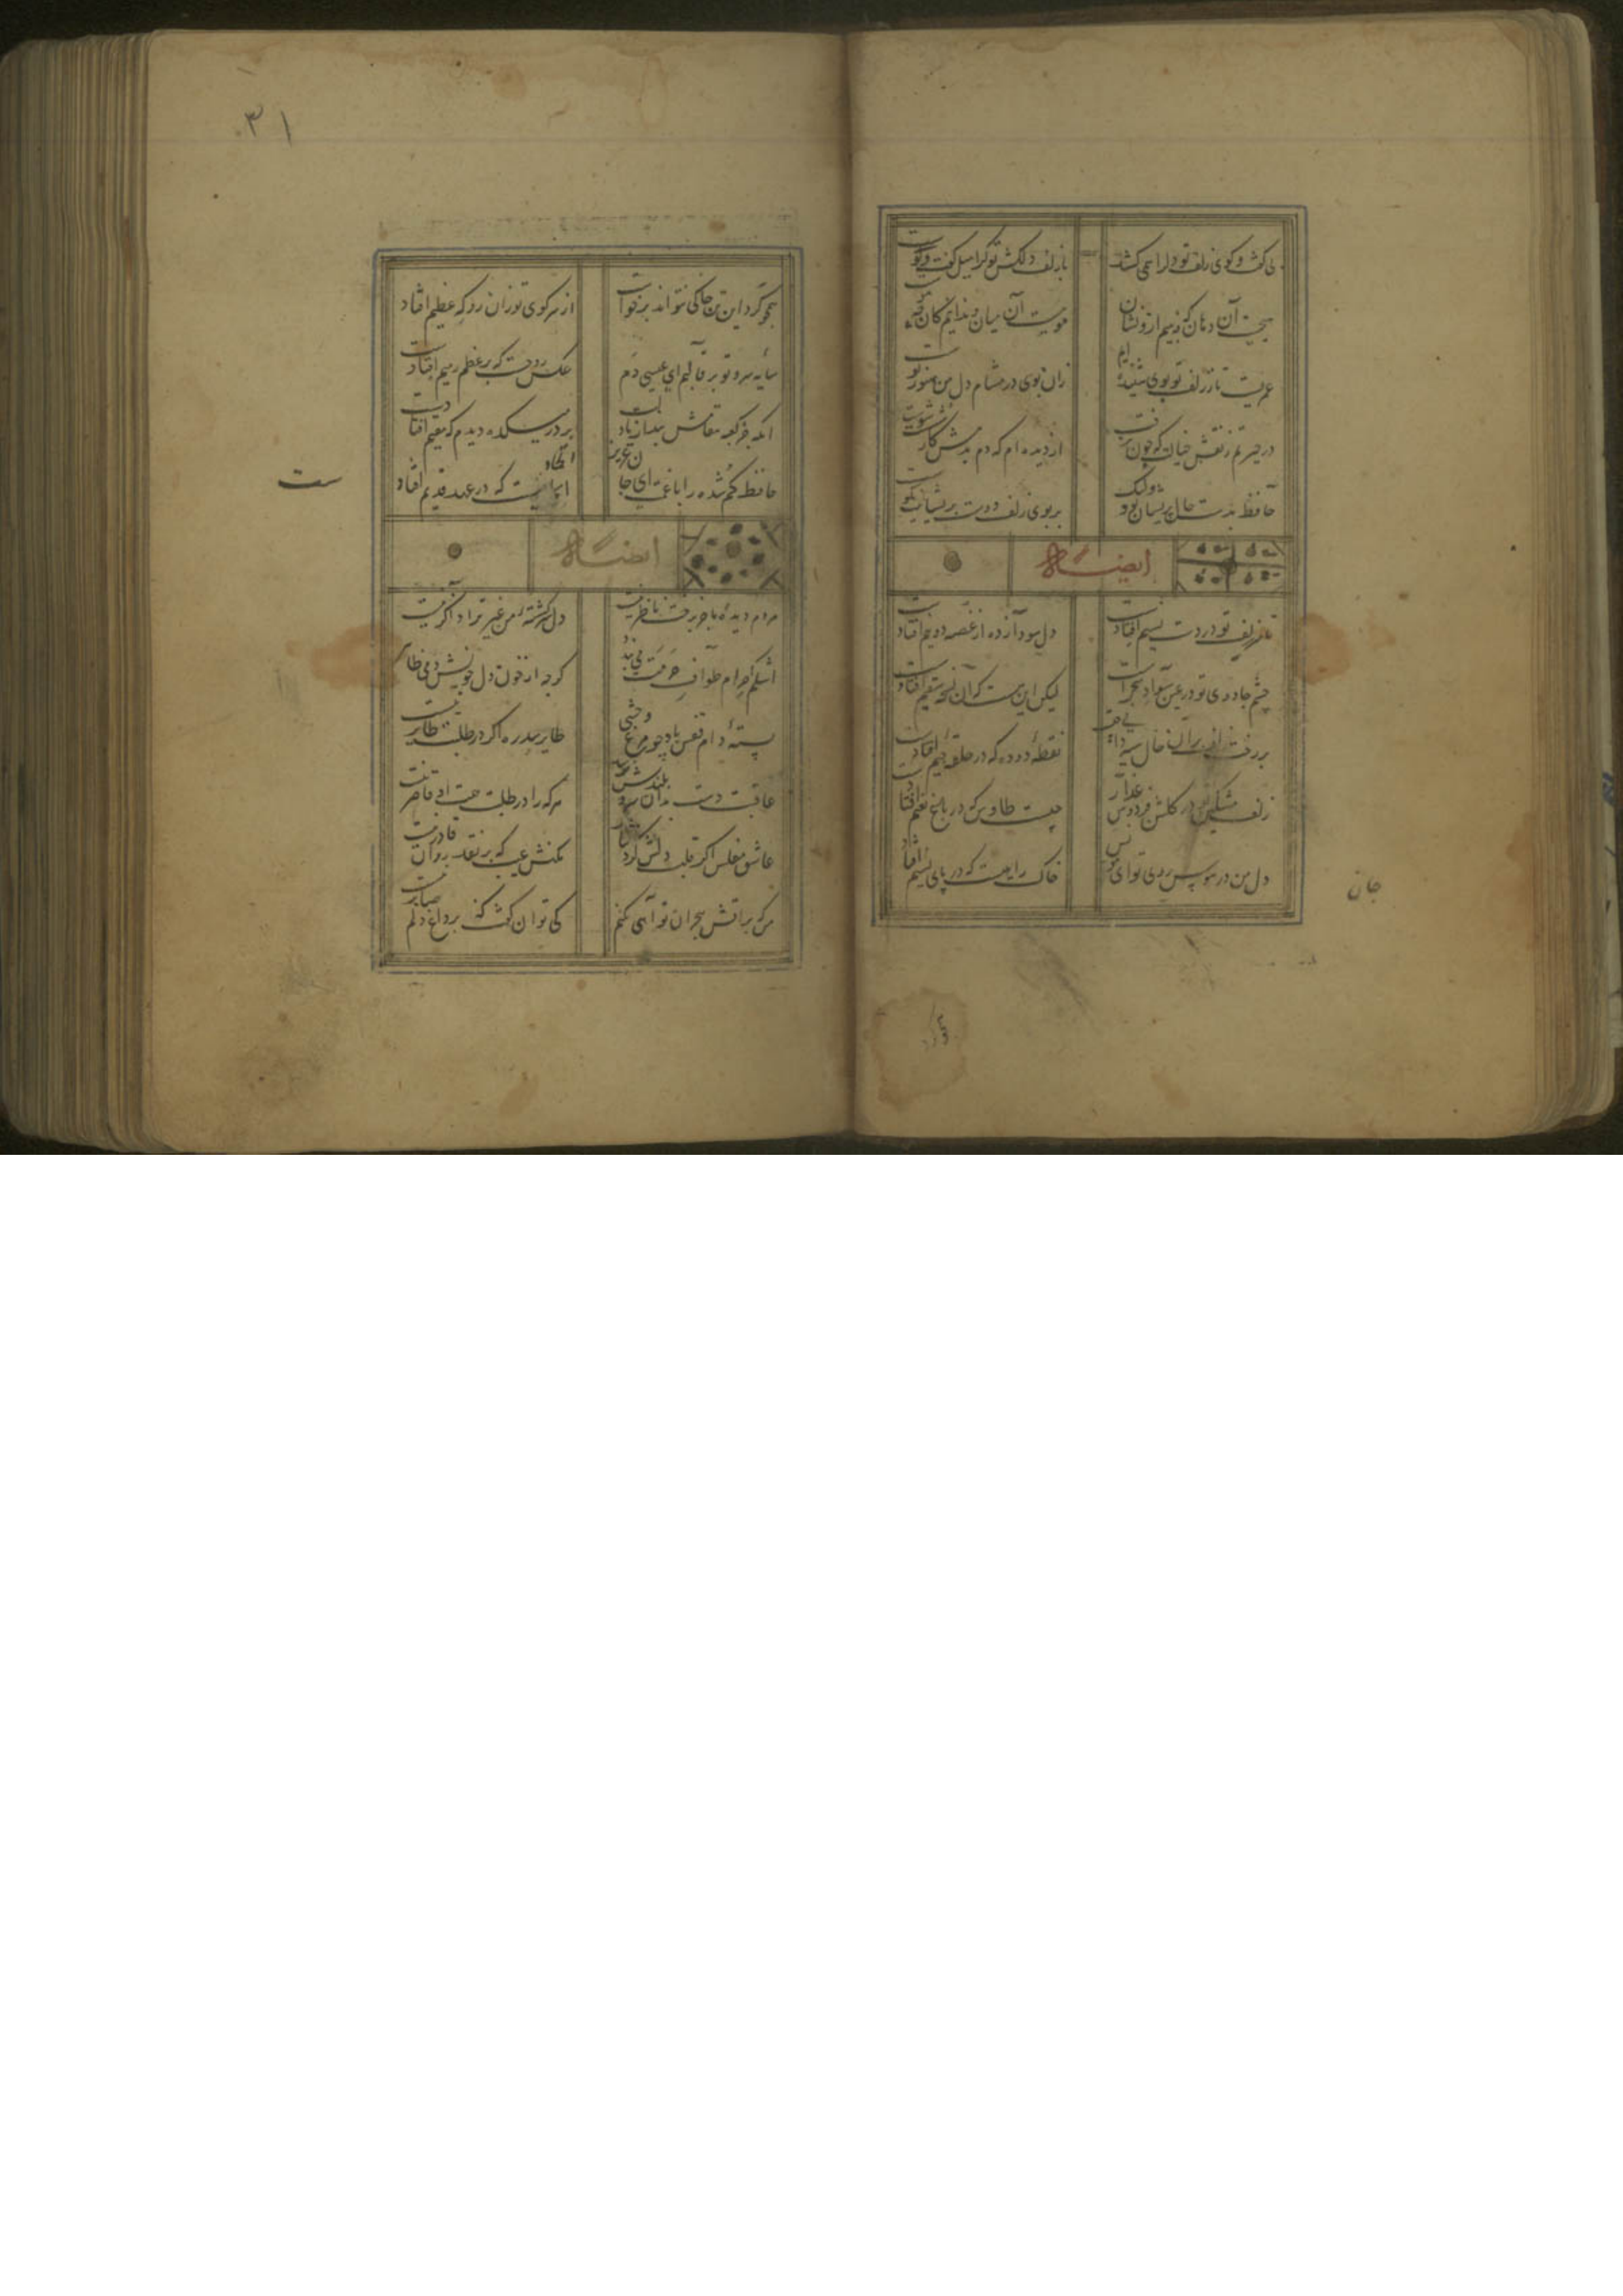 بی گفت و کوی زلف تو دلرا همی کشد
با زلف دلکش تو کرا میل گفت و کوست
هیچست آن دهان که نبینم ازو نشان
مویست آن میان و ندانم کان چه موست
عمریست تا ز زلف تو بوی شنیده ایم
زان بوی در مشام دل من هنوز بوست
در حیرتم ز نقش خیالش که چون نرفت
از دیده ام که دم بدمش کار شست و شوست
حافظ بدست حال پریشان تو ولیک
بر بوی زلف دوست پریشانیت نکوست
ایضاً له
تا سر زلف تو در دست نسیم افتادست
دل سودازده از غصه دو نیم افتادست
چشم جادوی تو در عین سواد سحرست
لیکن این هست که آن نسخه سقیم افتادست
بر رخت از بر آن خال سیه دانی چیست
نقطهٔ دوده که در حلقهٔ جیم افتادست
زلف مشکین در کلشن فردوس عذار
چیست طاوس که در باغ نعیم افتادست
دل من در هوس روی تو ای مونس
خاک راهیست که در پای نسیم افتادست
جان
۳۱
همچو کرد این تن خاکی نتواند برخواست
از سر کوی تو زان رو که عظیم افتادست
سایه سرو تو بر قالبم ای عیسی دم
عکس روحست که بر عظم رمیم افتادست
آنکه جز کعبه مقامش نبد از یاد لبت
بر در میکده دیدم که مقیم افتادست
حافظ کم شده را با غمت ای جان عزیز
اتحادیست که در عهد قدیم افتاد
ست
ایضاً له
مردم دیدهٔ ما جز برخت ناظر نیست
دل سرکشتهٔ من غیر ترا ذاکر نیست
اشکم احرام طواف حرمت می بندد
کرچه از خون دل خویش دمی طاهر
بستهٔ دام قفس باد چو مرغ وحشی
طایر سدره اکر در طلبت طایر نیست
عاقبت دست بدان سرو بلندش برسد
هر که را در طلبت همت او قاصر نیست
عاشق مفلس اکر قلب دلش کرد نثار
مکنش عیب که بر نقد روان قادر نیست
من که بر آتش هجران تو آهی نکنم
کی توان کفت که بر داغ دلم صابر نیست